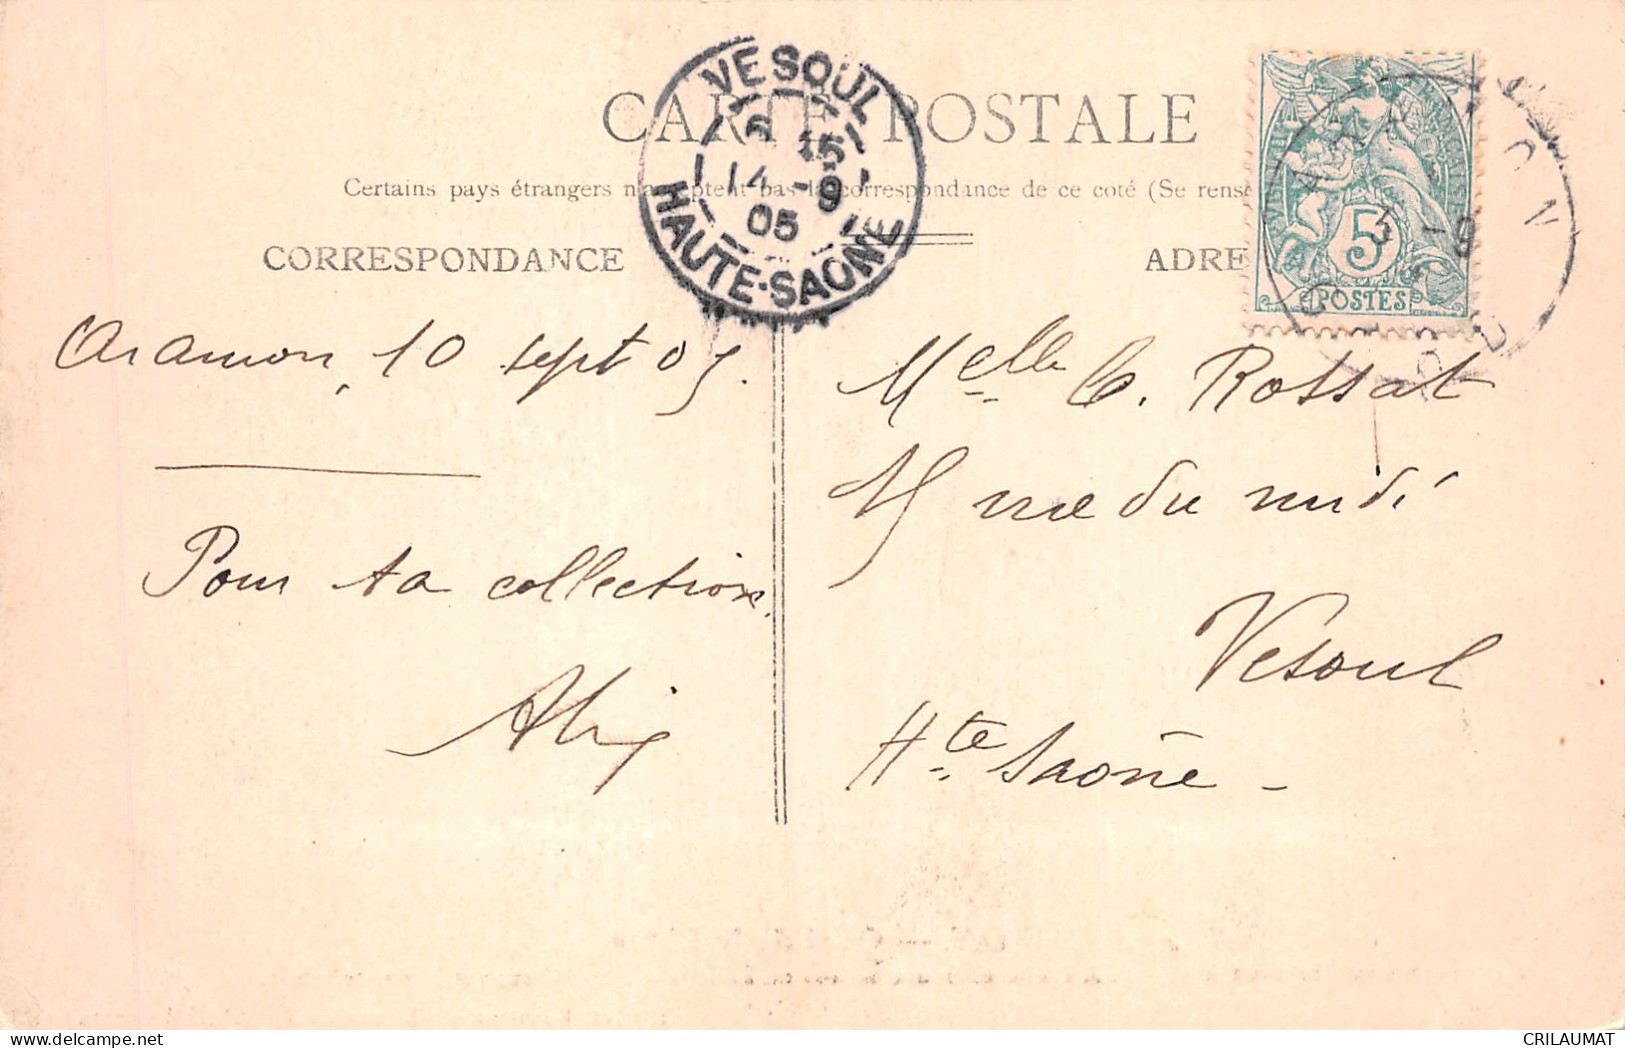 CARTE POSTALE
Certains pays étrangers n'acceptent pas la correspondance de ce coté (Se rense
CORRESPONDANCE
ADRE
VESOUL
6 15
14 -9
05
HAUTE-SAÔNE
5
POSTES
Aramon, 10 sept 05.
Pour ta collection.
Alix
Melle C. Rossat
15 rue du midi
Vesoul
Hte Saône -
CRILAUMAT